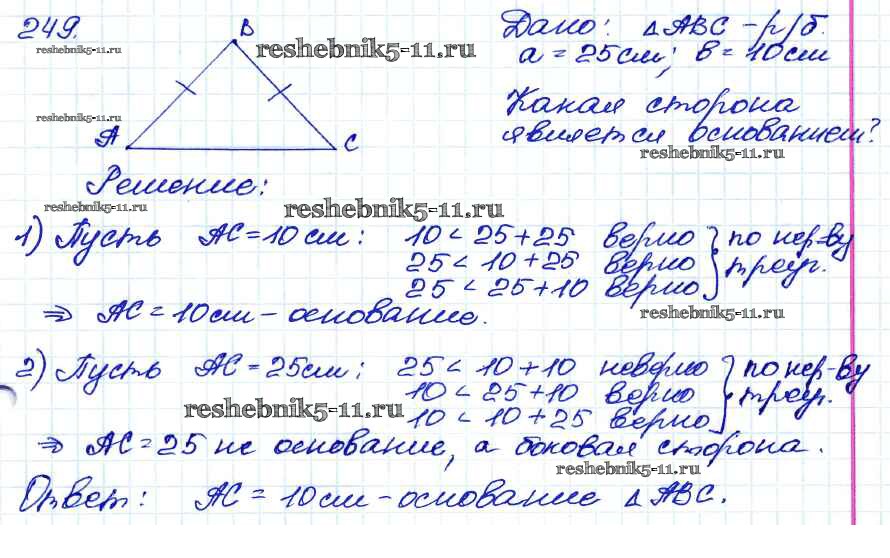 249.
reshebnik5-11.ru
B
reshebnik5-11.ru
reshebnik5-11.ru
A
C
Дано: △ ABC - р/б.
a = 25 см; b = 10 см
Какая сторона
является основанием?
reshebnik5-11.ru
Решение:
reshebnik5-11.ru
reshebnik5-11.ru
1) Пусть AC = 10 см: 10 < 25 + 25 верно } по нер-ву
25 < 10 + 25 верно треуг.
25 < 25 + 10 верно
⇒ AC = 10 см - основание.
reshebnik5-11.ru
2) Пусть AC = 25 см: 25 < 10 + 10 неверно } по нер-ву
10 < 25 + 10 верно треуг.
reshebnik5-11.ru
10 < 10 + 25 верно
⇒ AC = 25 не основание, а боковая сторона.
reshebnik5-11.ru
Ответ: AC = 10 см - основание △ ABC.